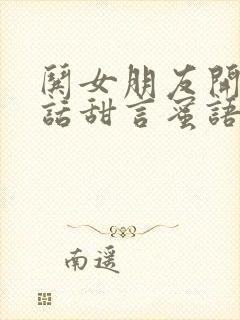 鬨女朋友開
話甜言蜜語
南遥